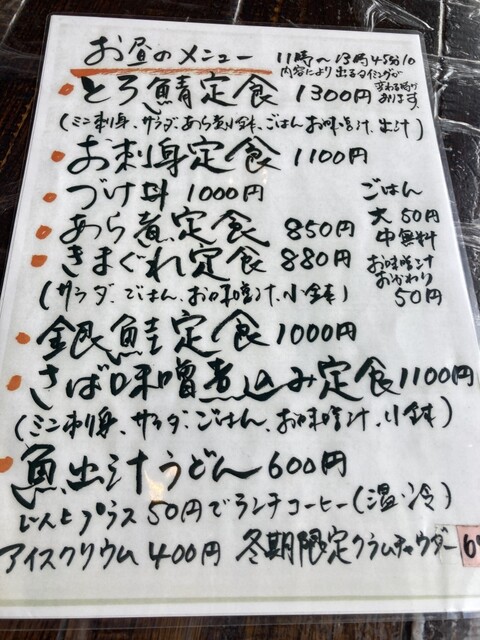 お昼のメニュー
11時〜13時45分LO
内容により出るタイミングが
変わる時が
あります。
とろ鯖定食 1300円
(ミニ刺身、サラダ、あら煮小鉢、ごはん、お味噌汁、出汁)
お刺身定食 1100円
づけ丼 1000円
あら煮定食 850円
きまぐれ定食 880円
(サラダ、ごはん、お味噌汁、小鉢)
ごはん
大 50円
中 無料
お味噌汁
おかわり
50円
銀鮭定食 1000円
さば味噌煮込み定食 1100円
(ミニ刺身、サラダ、ごはん、お味噌汁、小鉢)
魚出汁うどん 600円
プラス 50円でランチコーヒー(温・冷)
アイスクリウム 400円 冬期限定クラムチャウダー